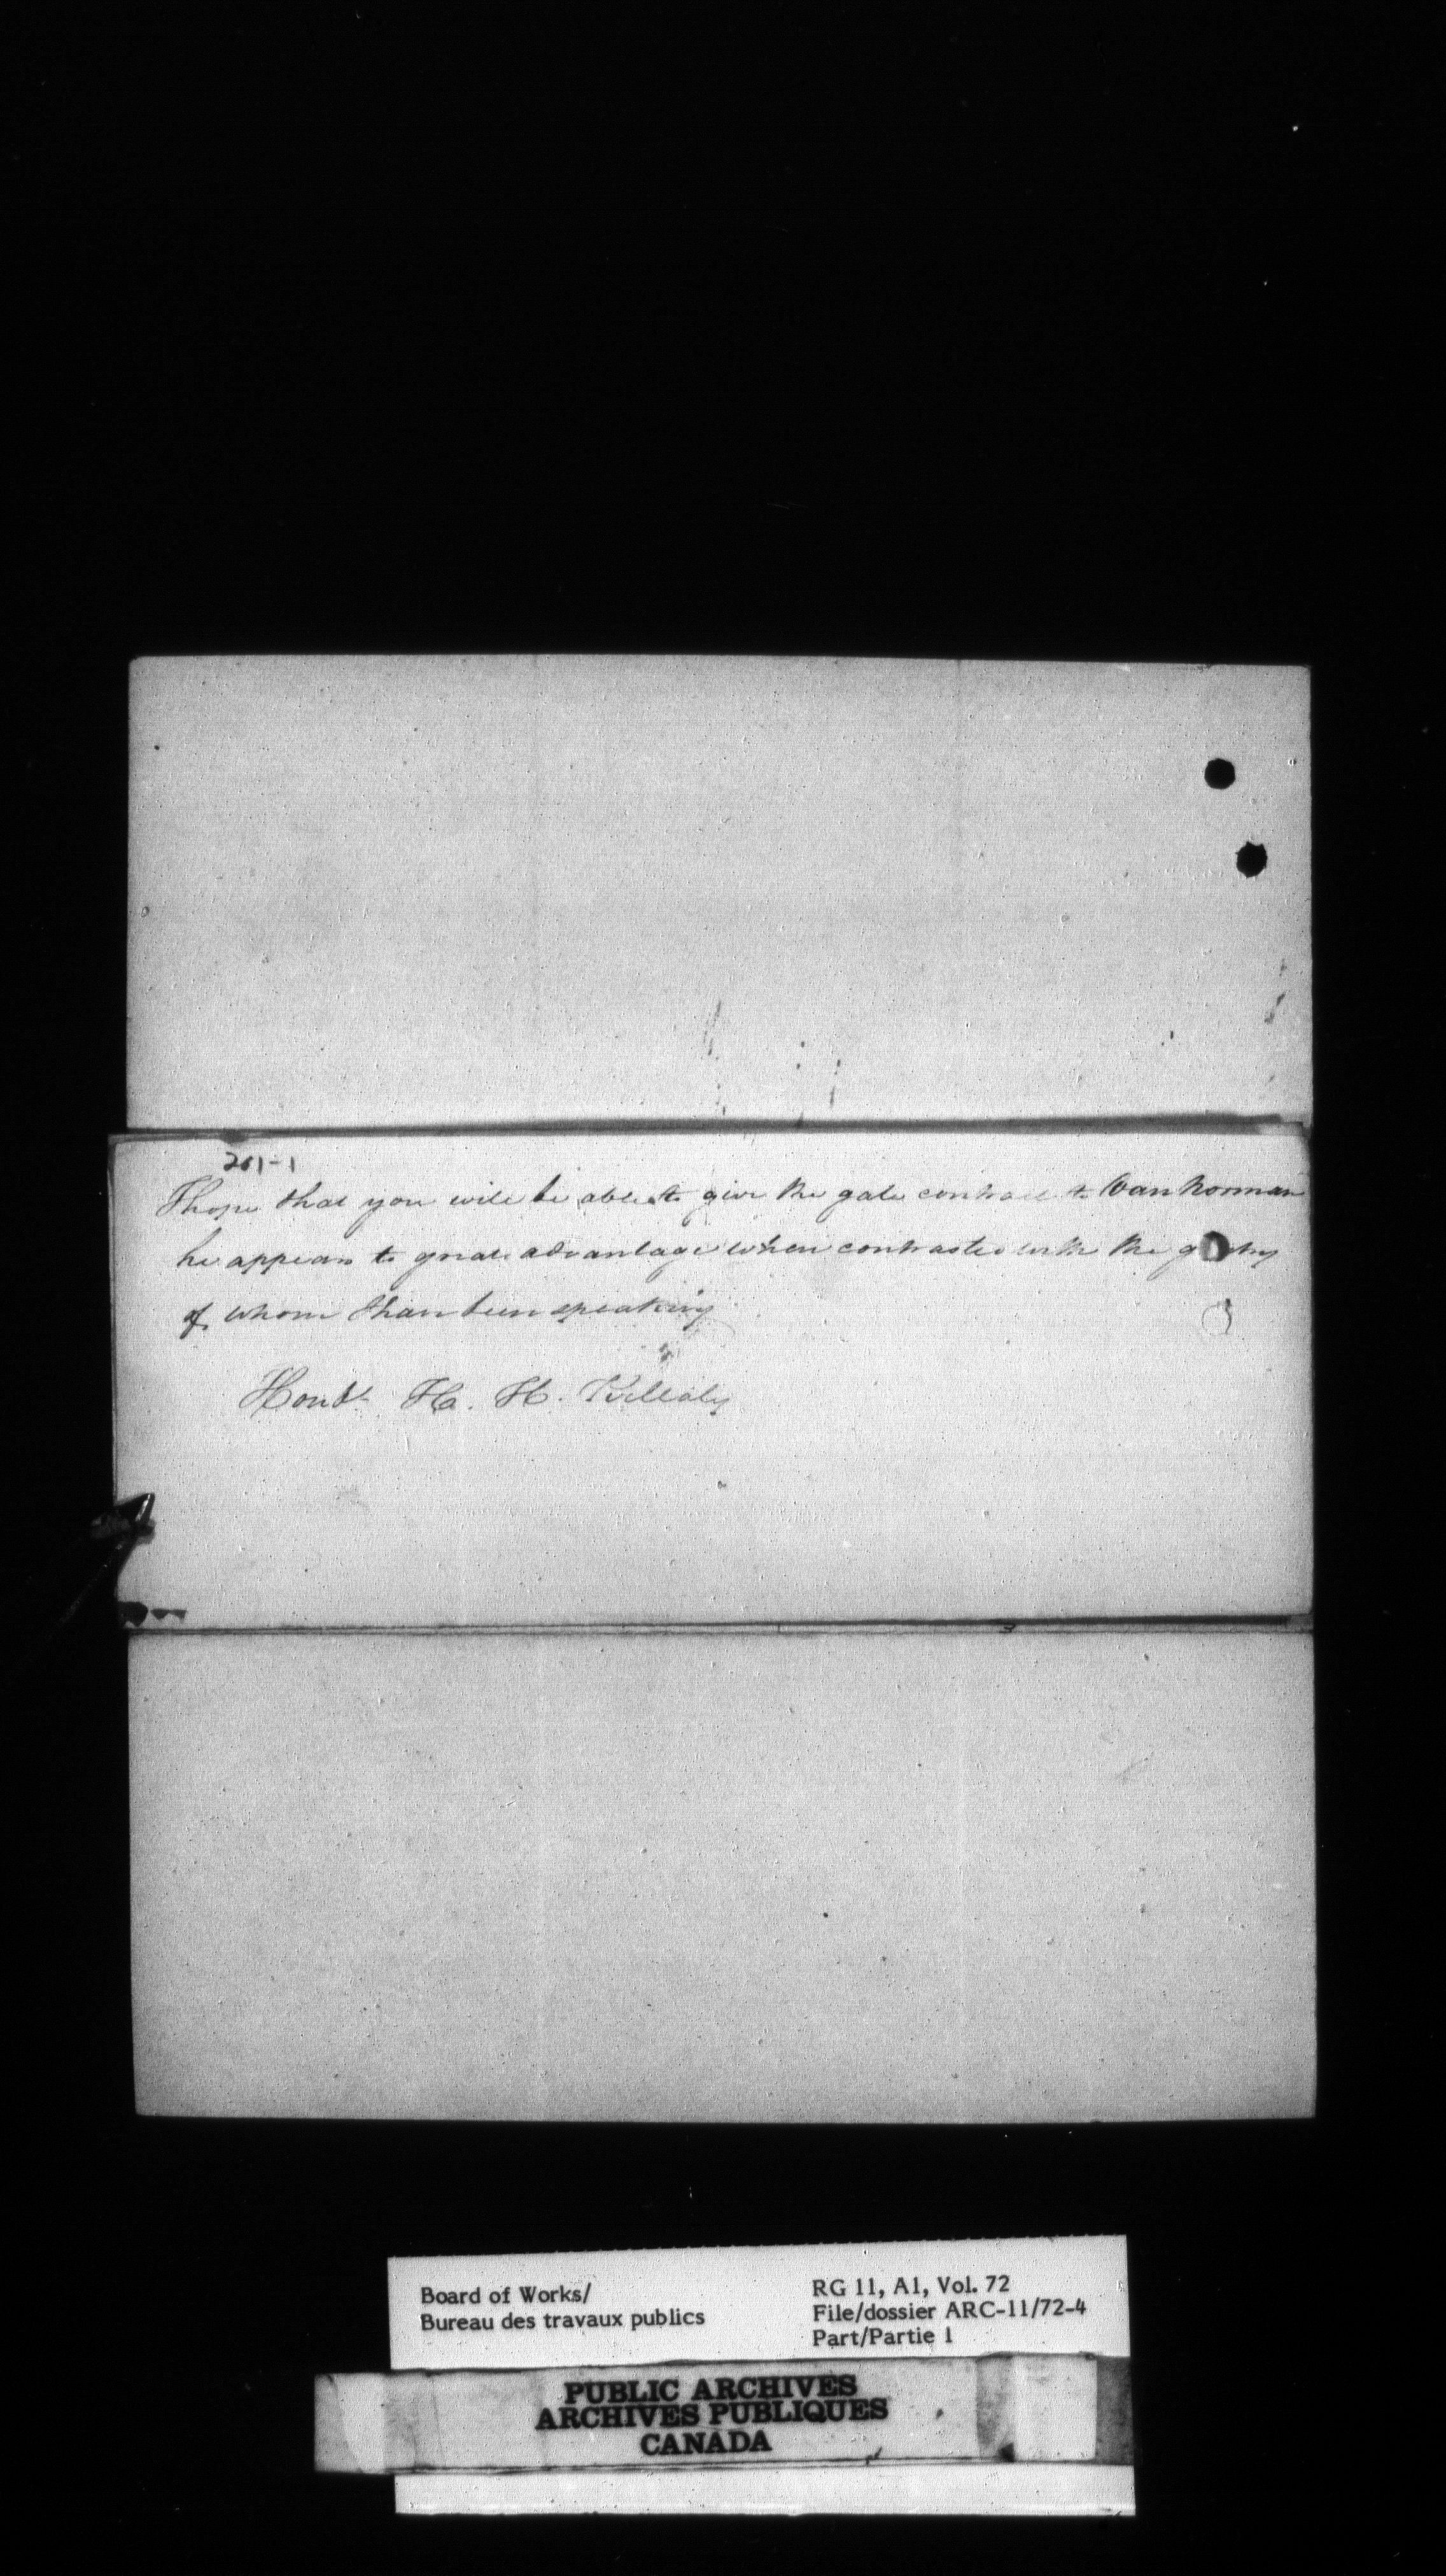 261-1
I hope that you will be able to give the gate contract to Van Norman
he appears to great advantage when contrasted with the
of whom I have been speaking
Honble H. H. Killaly
Board of Works/
Bureau des travaux publics
RG 11, A1, Vol. 72
File/dossier ARC-11/72-4
Part/Partie 1
PUBLIC ARCHIVES
ARCHIVES PUBLIQUES
CANADA